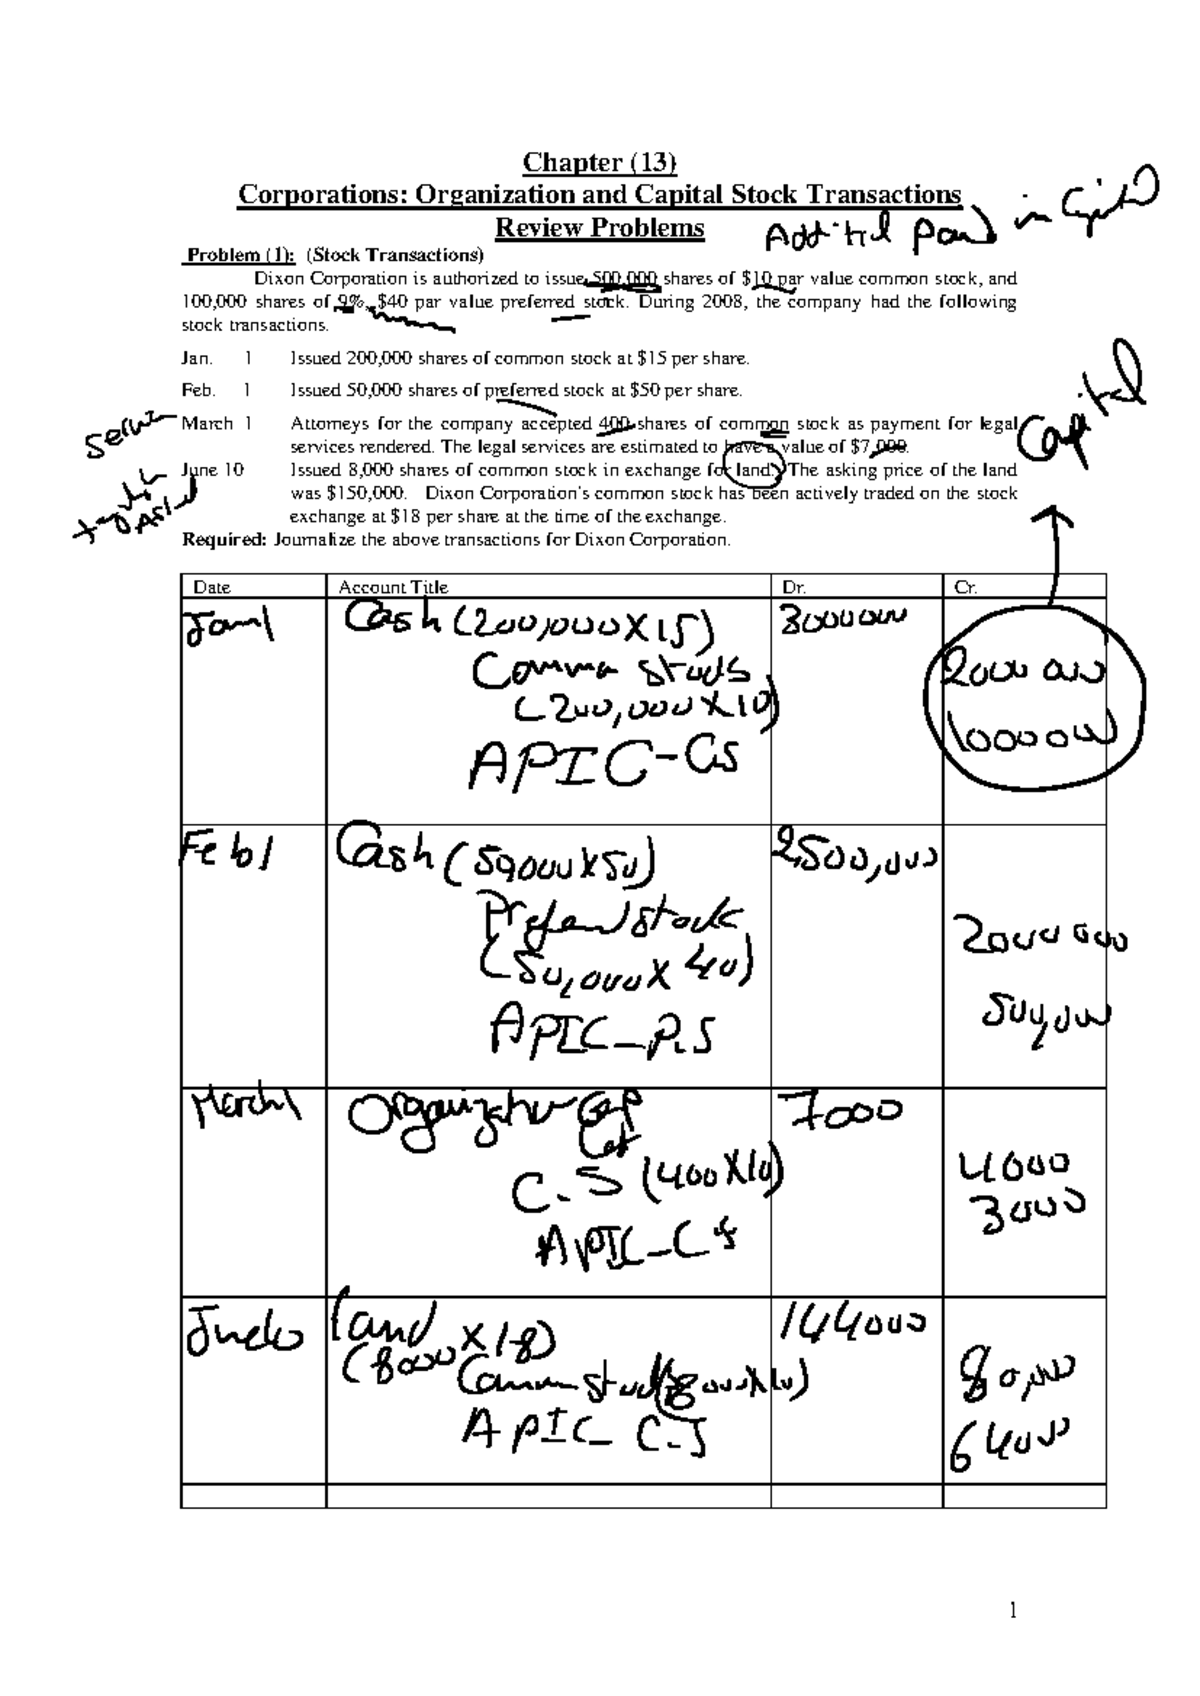 Chapter (13)
Corporations: Organization and Capital Stock Transactions
Review Problems
Paid in Capital
Problem (1): (Stock Transactions)
Dixon Corporation is authorized to issue 500,000 shares of $10 par value common stock, and
100,000 shares of 9%, $40 par value preferred stock. During 2008, the company had the following
stock transactions.
Jan. 1 Issued 200,000 shares of common stock at $15 per share.
Feb. 1 Issued 50,000 shares of preferred stock at $50 per share.
Capital
March 1 Attorneys for the company accepted 400 shares of common stock as payment for legal
services rendered. The legal services are estimated to have a value of $7,000.
June 10 Issued 8,000 shares of common stock in exchange for land. The asking price of the land
was $150,000. Dixon Corporation's common stock has been actively traded on the stock
exchange at $18 per share at the time of the exchange.
Required: Journalize the above transactions for Dixon Corporation.
Date Account Title Dr. Cr.
Jan 1 Cash (200,000 X 15) 3000000
2000 000
(200,000 X 10)
APIC - CS 1000000
Feb 1 Cash (50,000 X 50) 2,500,000
Stock 2000 000
(50,000 X 40)
APIC - P.S 500,000
March 1 7000
C.S (400 X 10) 4000
APIC - CS 3000
land 144000
(8000 X 18)
Common stock (8000 X 10) 80,000
APIC - C.S 64000
1